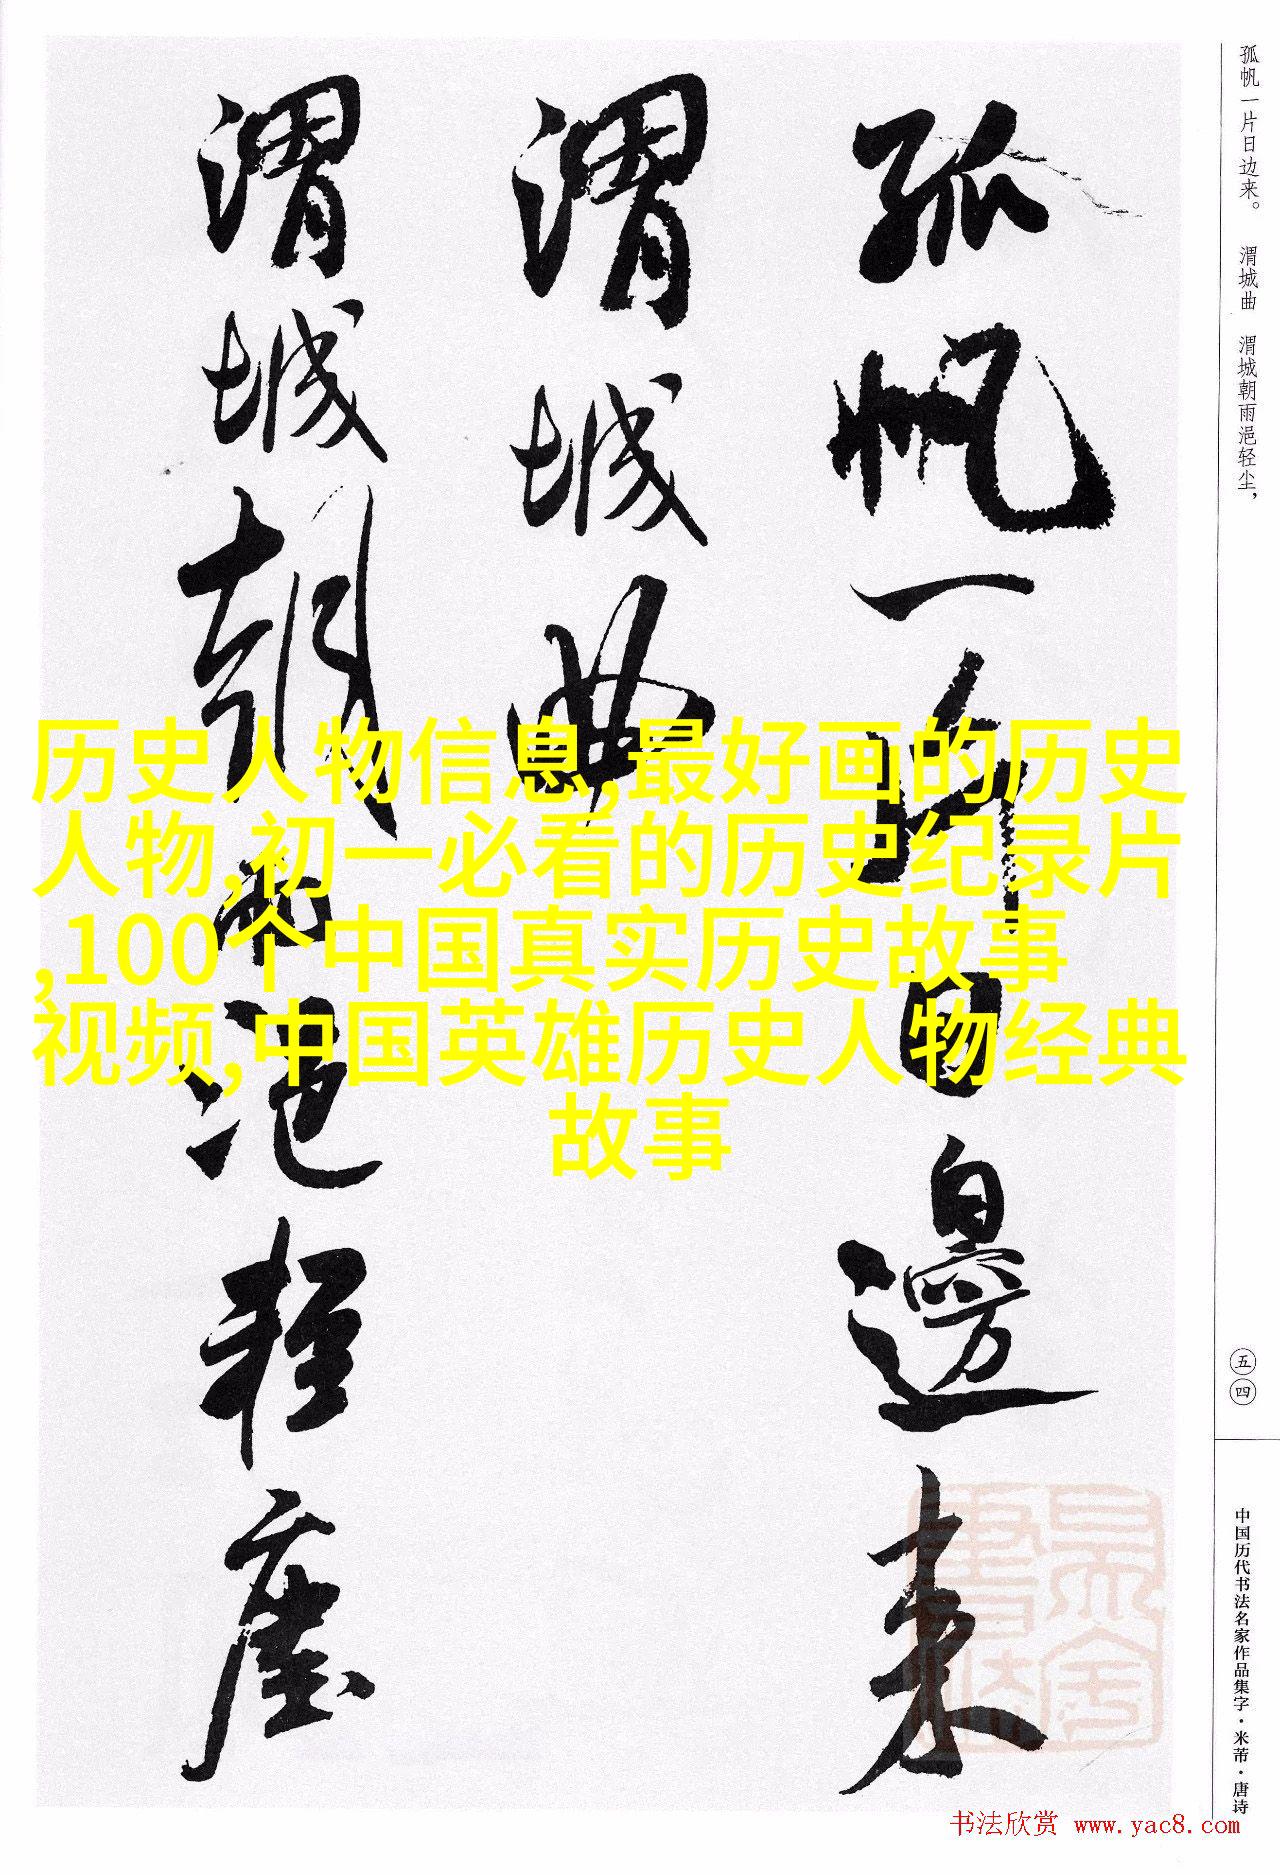 孤帆一片日邊来
渭城曲
渭城朝雨浥輕塵
孤帆一片日边来。 渭城曲 渭城朝雨浥轻尘,
五四
中国历代书法名家作品集字·米芾·唐诗
历史人物信息,最好画的历史
人物,初一必看的历史纪录片
,100个中国真实历史故事
视频,中国英雄历史人物经典
故事
书法欣赏 www.yac8.com